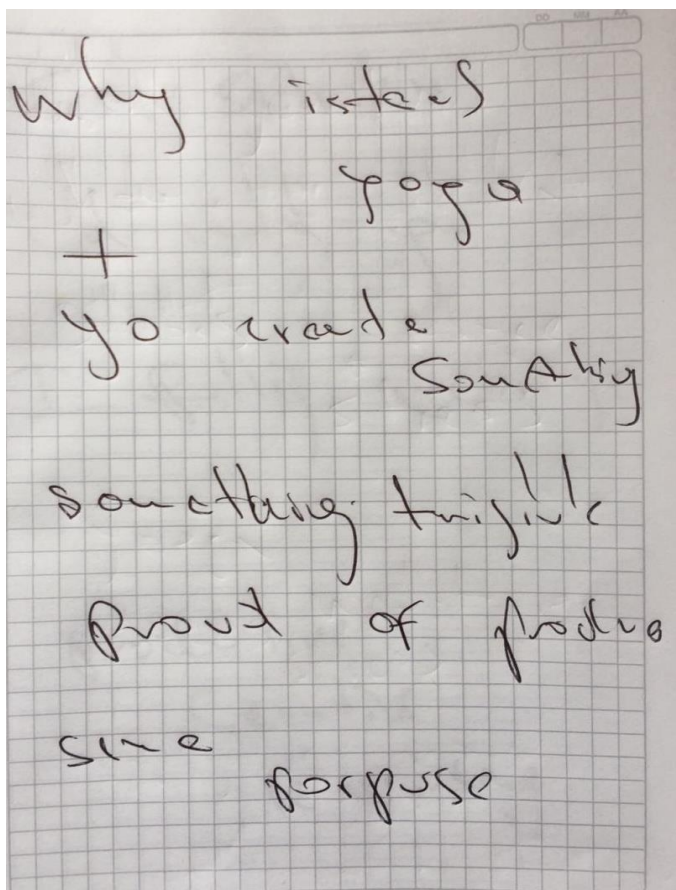 why istead
yoga
+
yo create
Something
something
Proud of produc
same
porpuse